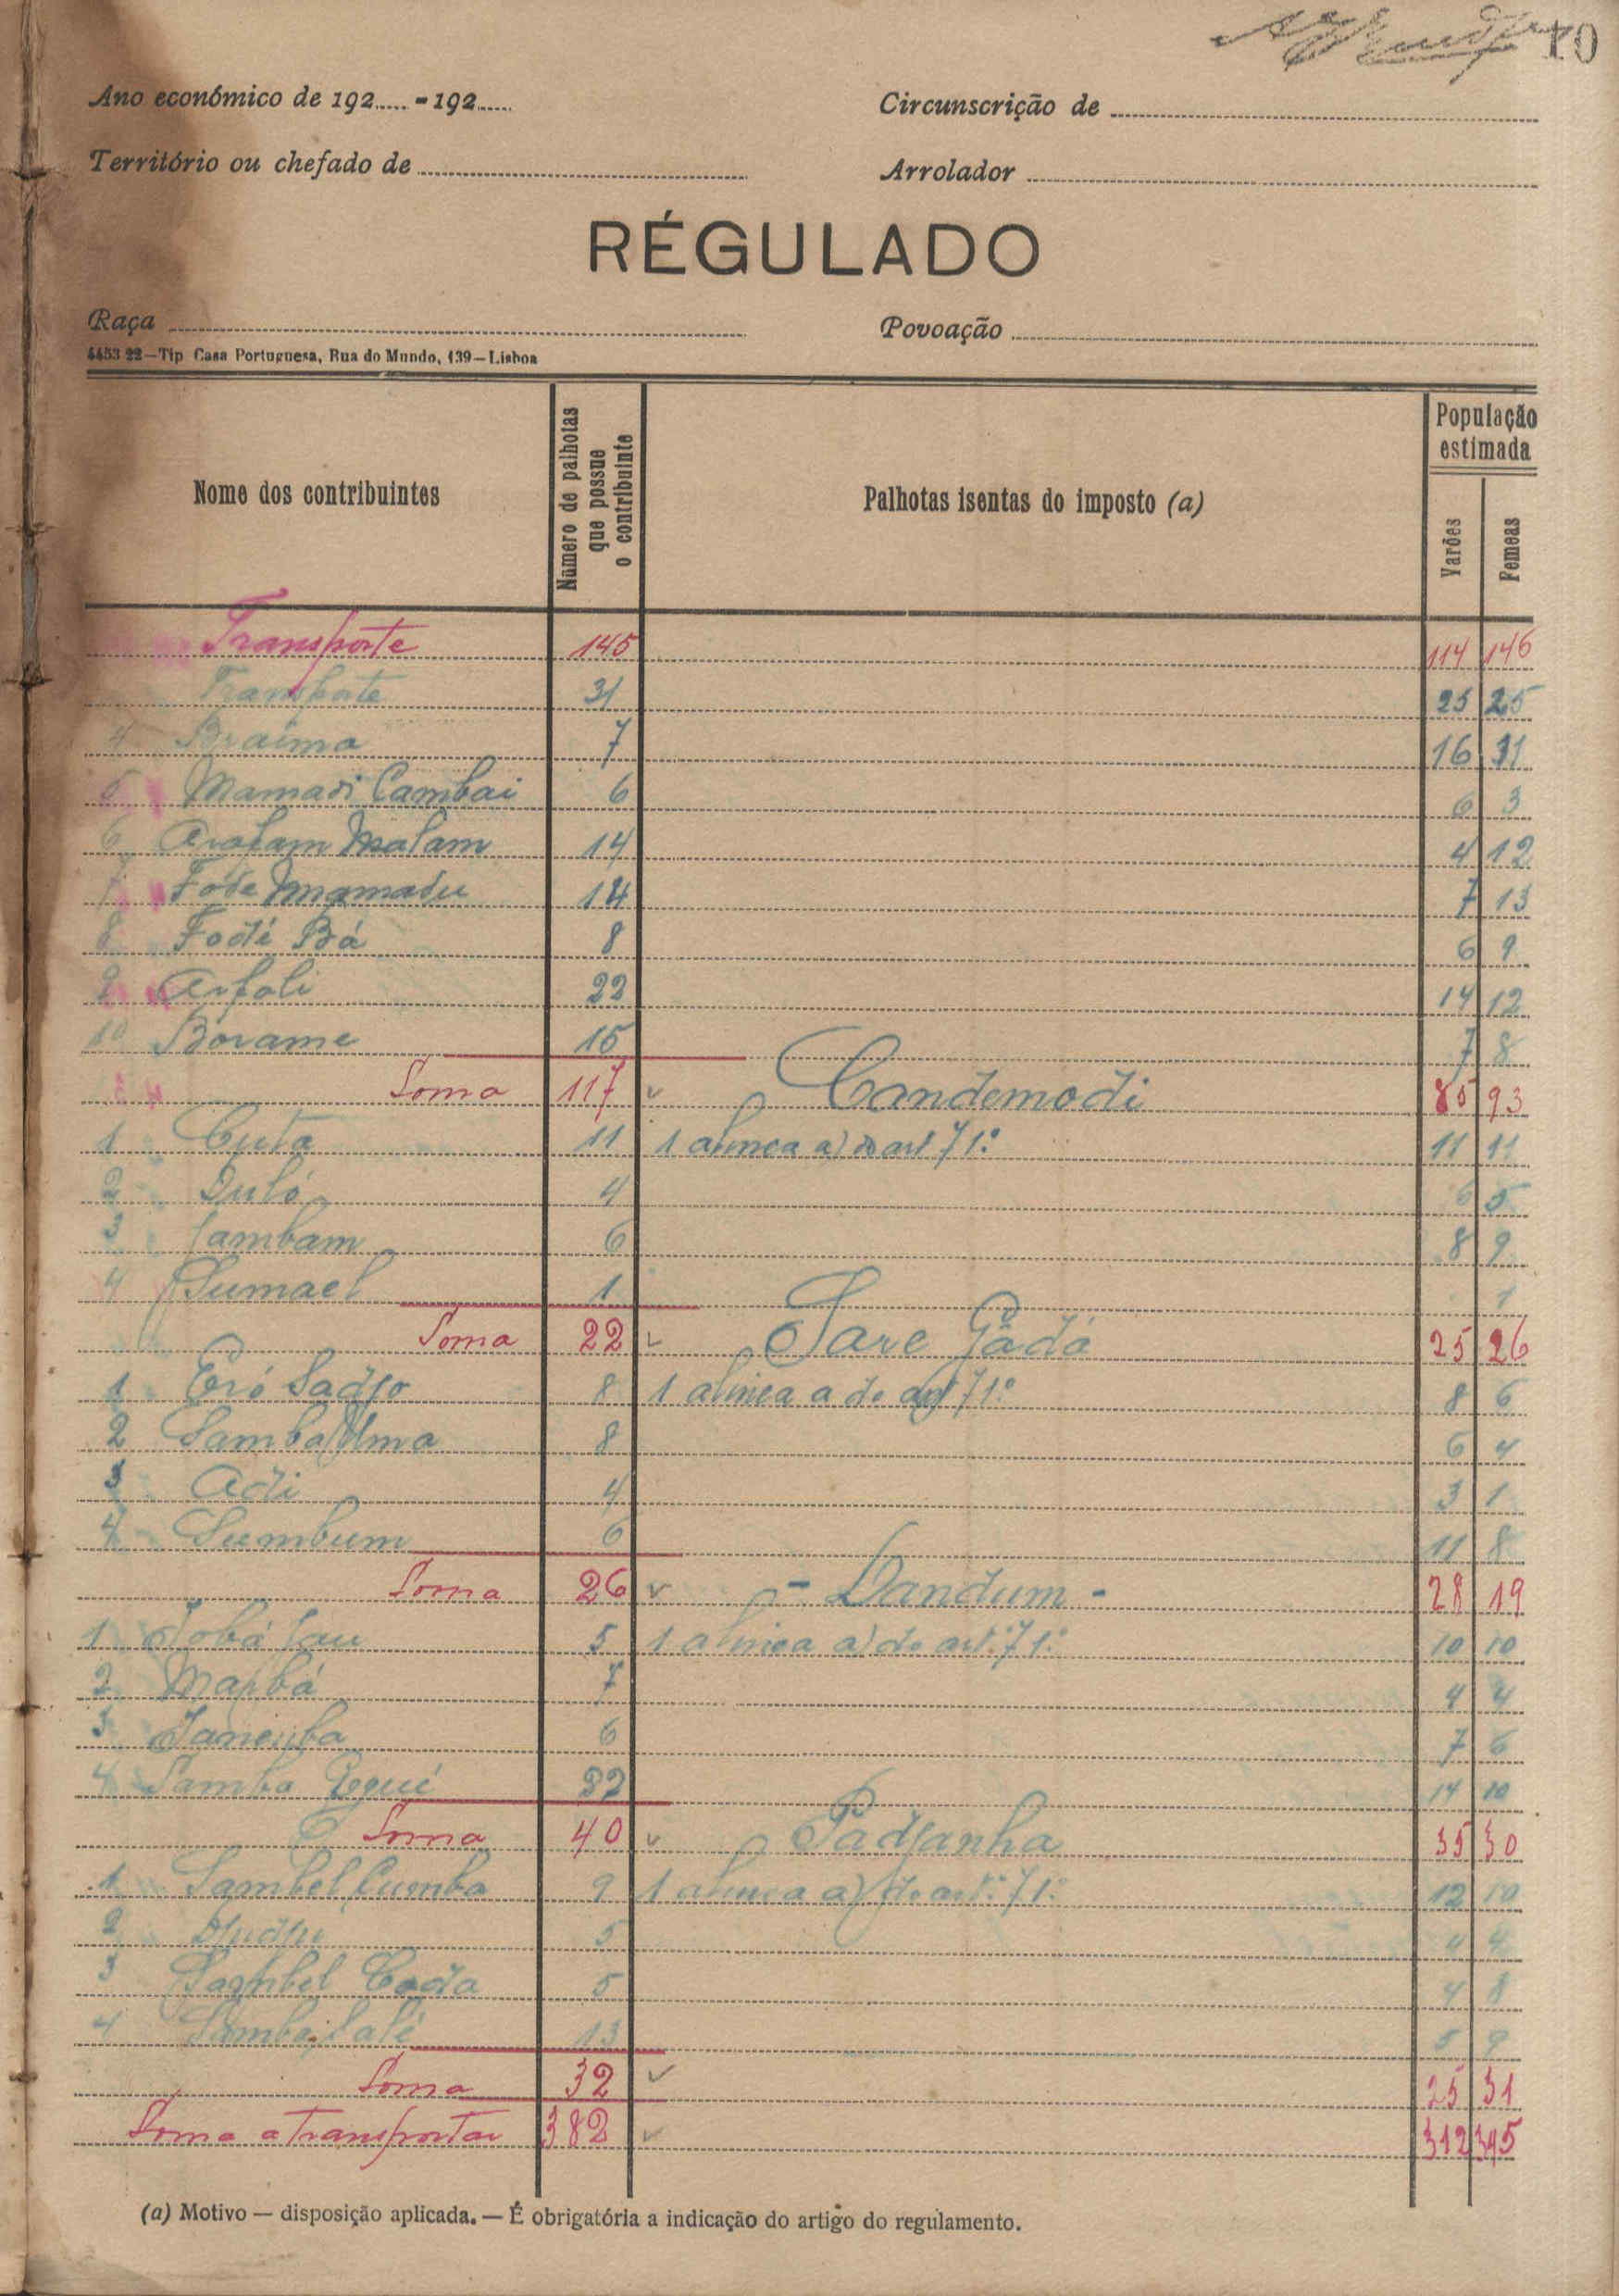 10
Ano económico de 192..... - 192.....
Circunscrição de
Território ou chefado de
Arrolador
RÉGULADO
Raça
Povoação
4453 22—Tip Casa Portuguesa, Rua do Mundo, 139—Lisboa
Nome dos contribuintes
Número de palhotas que possue o contribuinte
Palhotas isentas do imposto (a)
População estimada
Varões
Femeas
Transporte 145 114 146
Transporte 31 25 25
4 Braima 7 16
5 Mamadi Cambai 6 6 3
6 Malam 14 4 12
7 Fóde Mamadu 14 7 13
8 Fodé Bá 8 6 9
9 Arfoli 22 14 12
10 Borame 15 7 8
Soma 117 Candemodi 85 93
1 Cuta 11 1 alinea a) do art 71º 11 11
2 Duló 4 6 5
3 Sambam 6 8 9
4 Sumael 1 1
Soma 22 Sare Gádá 25 26
1 Eró Sadjo 8 1 alinea a do art 71º 8 6
2 Samba 8 6 4
3 Adi 4 3 1
4 Sumbum 6 11 8
Soma 26 - Dandum - 28 19
1 5 1 alinea a) do art.º 71º 10 10
2 7 4 4
3 6 7 6
4 Samba 22 14 10
Soma 40 Padjanha 35 30
1 Sambel Cumba 9 1 alinea a) do art.º 71º 12 10
2 5 4 4
3 Sambel Coda 5 4 8
4 Samba 13 5 9
Soma 32 25 31
Soma a transportar 382 312 345
(a) Motivo — disposição aplicada. — É obrigatória a indicação do artigo do regulamento.